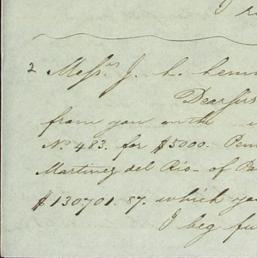 I
2 Mess.rs J. L.
Dear Sirs
from you on the
No. 483. for $5000.
Martinez del Rio - of Pa
$130.701.87. which you
I beg fu